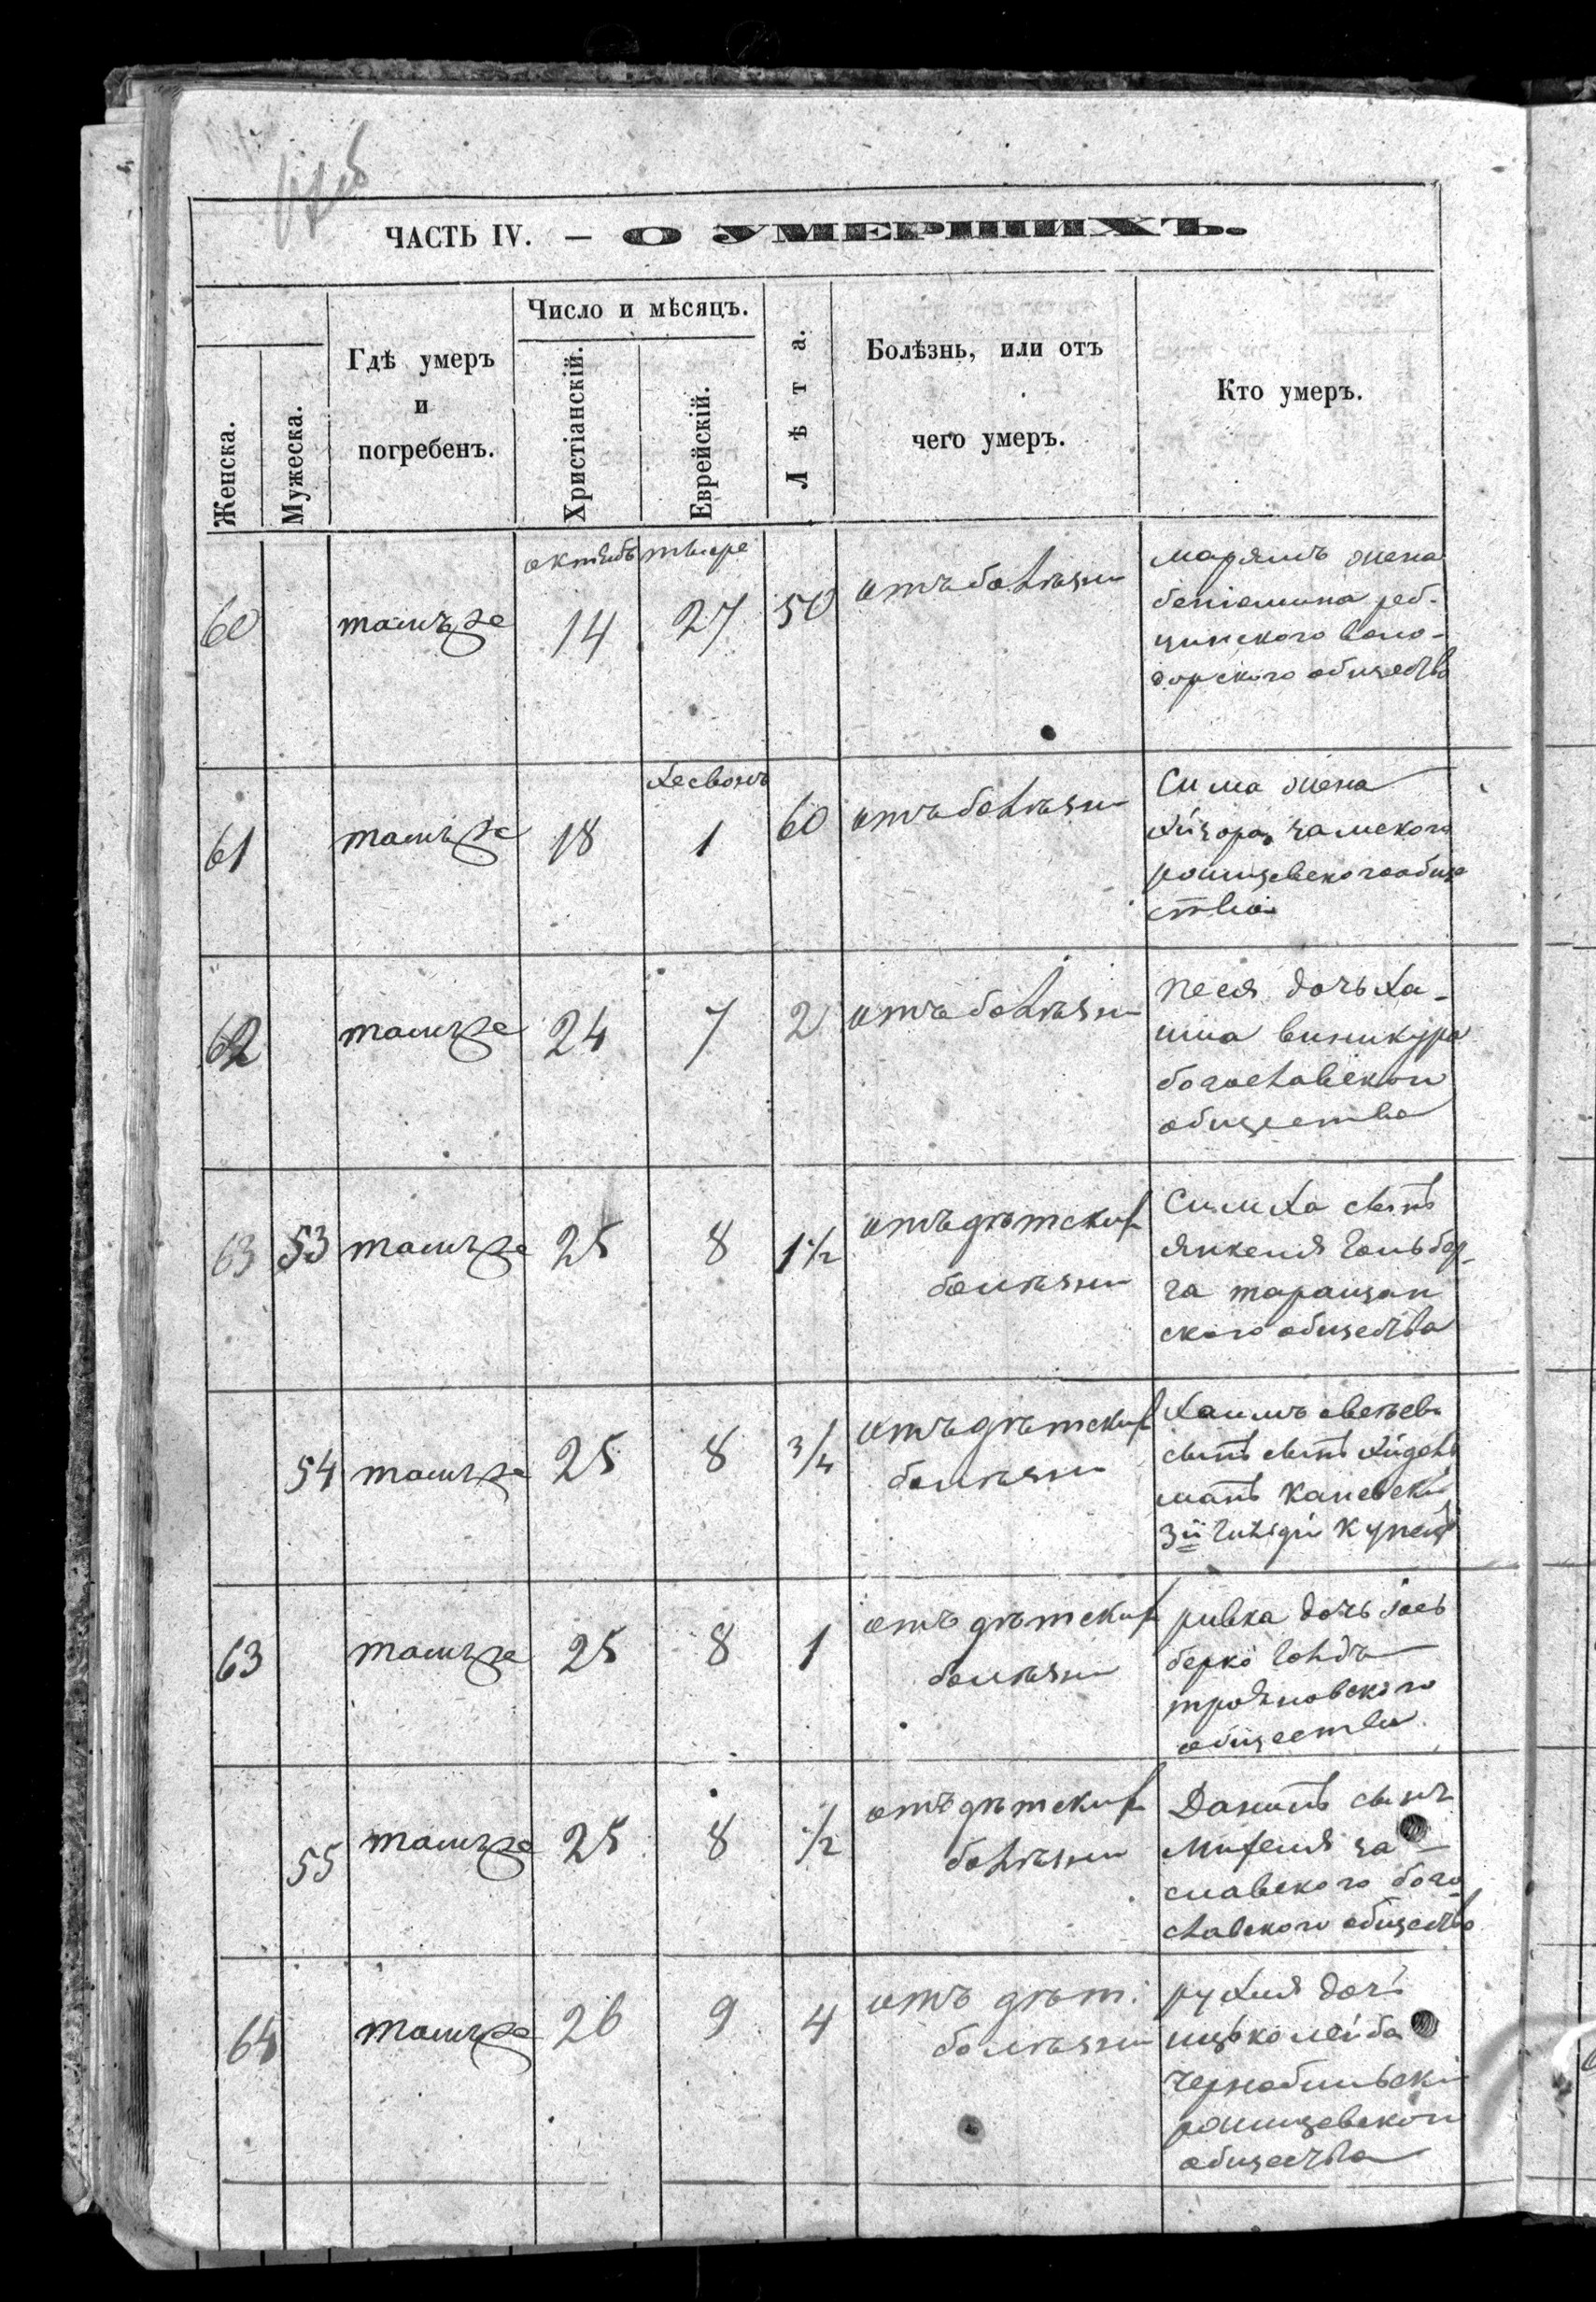 ЧАСТЬ IV. — О УМЕРШИХЪ.
Женска.
Мужеска.
Гдѣ умеръ
и
погребенъ.
Число и мѣсяцъ.
Христіанскій.
Еврейскій.
Лѣта.
Болѣзнь, или отъ
чего умеръ.
Кто умеръ.
октябъ тишре
60 тамъже 14 27 50 отъ болѣзни
марямъ жена
беніамина
общества
Хесвонъ
61 тамъже 18 1 60 отъ болѣзни
Сима жена
ромишевского обще
ства
62 тамъже 24 7 2 отъ болѣзни
песя дочь Ха-
има винникура
богославского
общества
63 53 тамъже 25 8 1 1/2 отъ дѣтских
болѣзни
Симха сынъ
янкеля Гольбер-
га таращан
ского общества
54 тамъже 25 8 3/4 отъ дѣтских
болѣзни
Хаимъ
сынъ
манъ каневски
3й гилдіи купец
63 тамъже 25 8 1 отъ дѣтских
болѣзни
ривка дочь іось
берко Голдъ
трояновского
общества
55 тамъже 25 8 1/2 отъ дѣтских
болѣзни
Данилъ сынъ
Михеля за-
славского бого
славского общество
64 тамъже 26 9 4 отъ дѣт.
болѣзни
рухля дочь
ицько лейба
чернобильски
ромишевского
общества